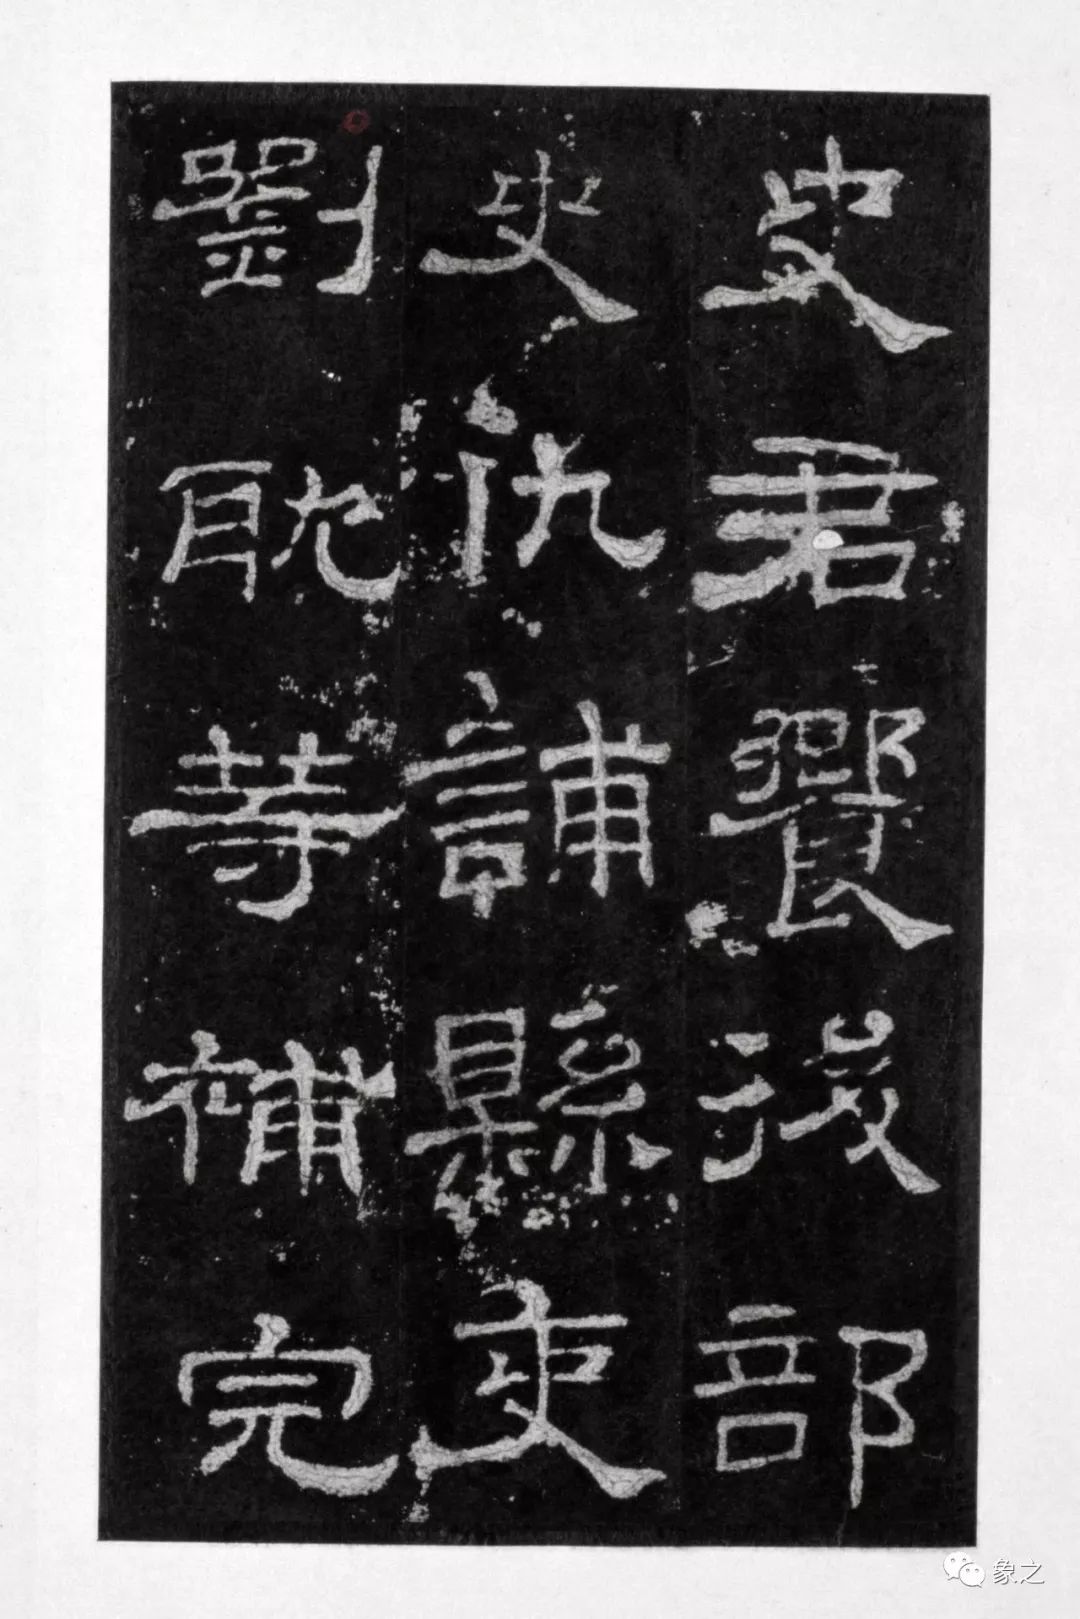 史君饗後部
史仇誧縣吏
劉耽等補完
象之